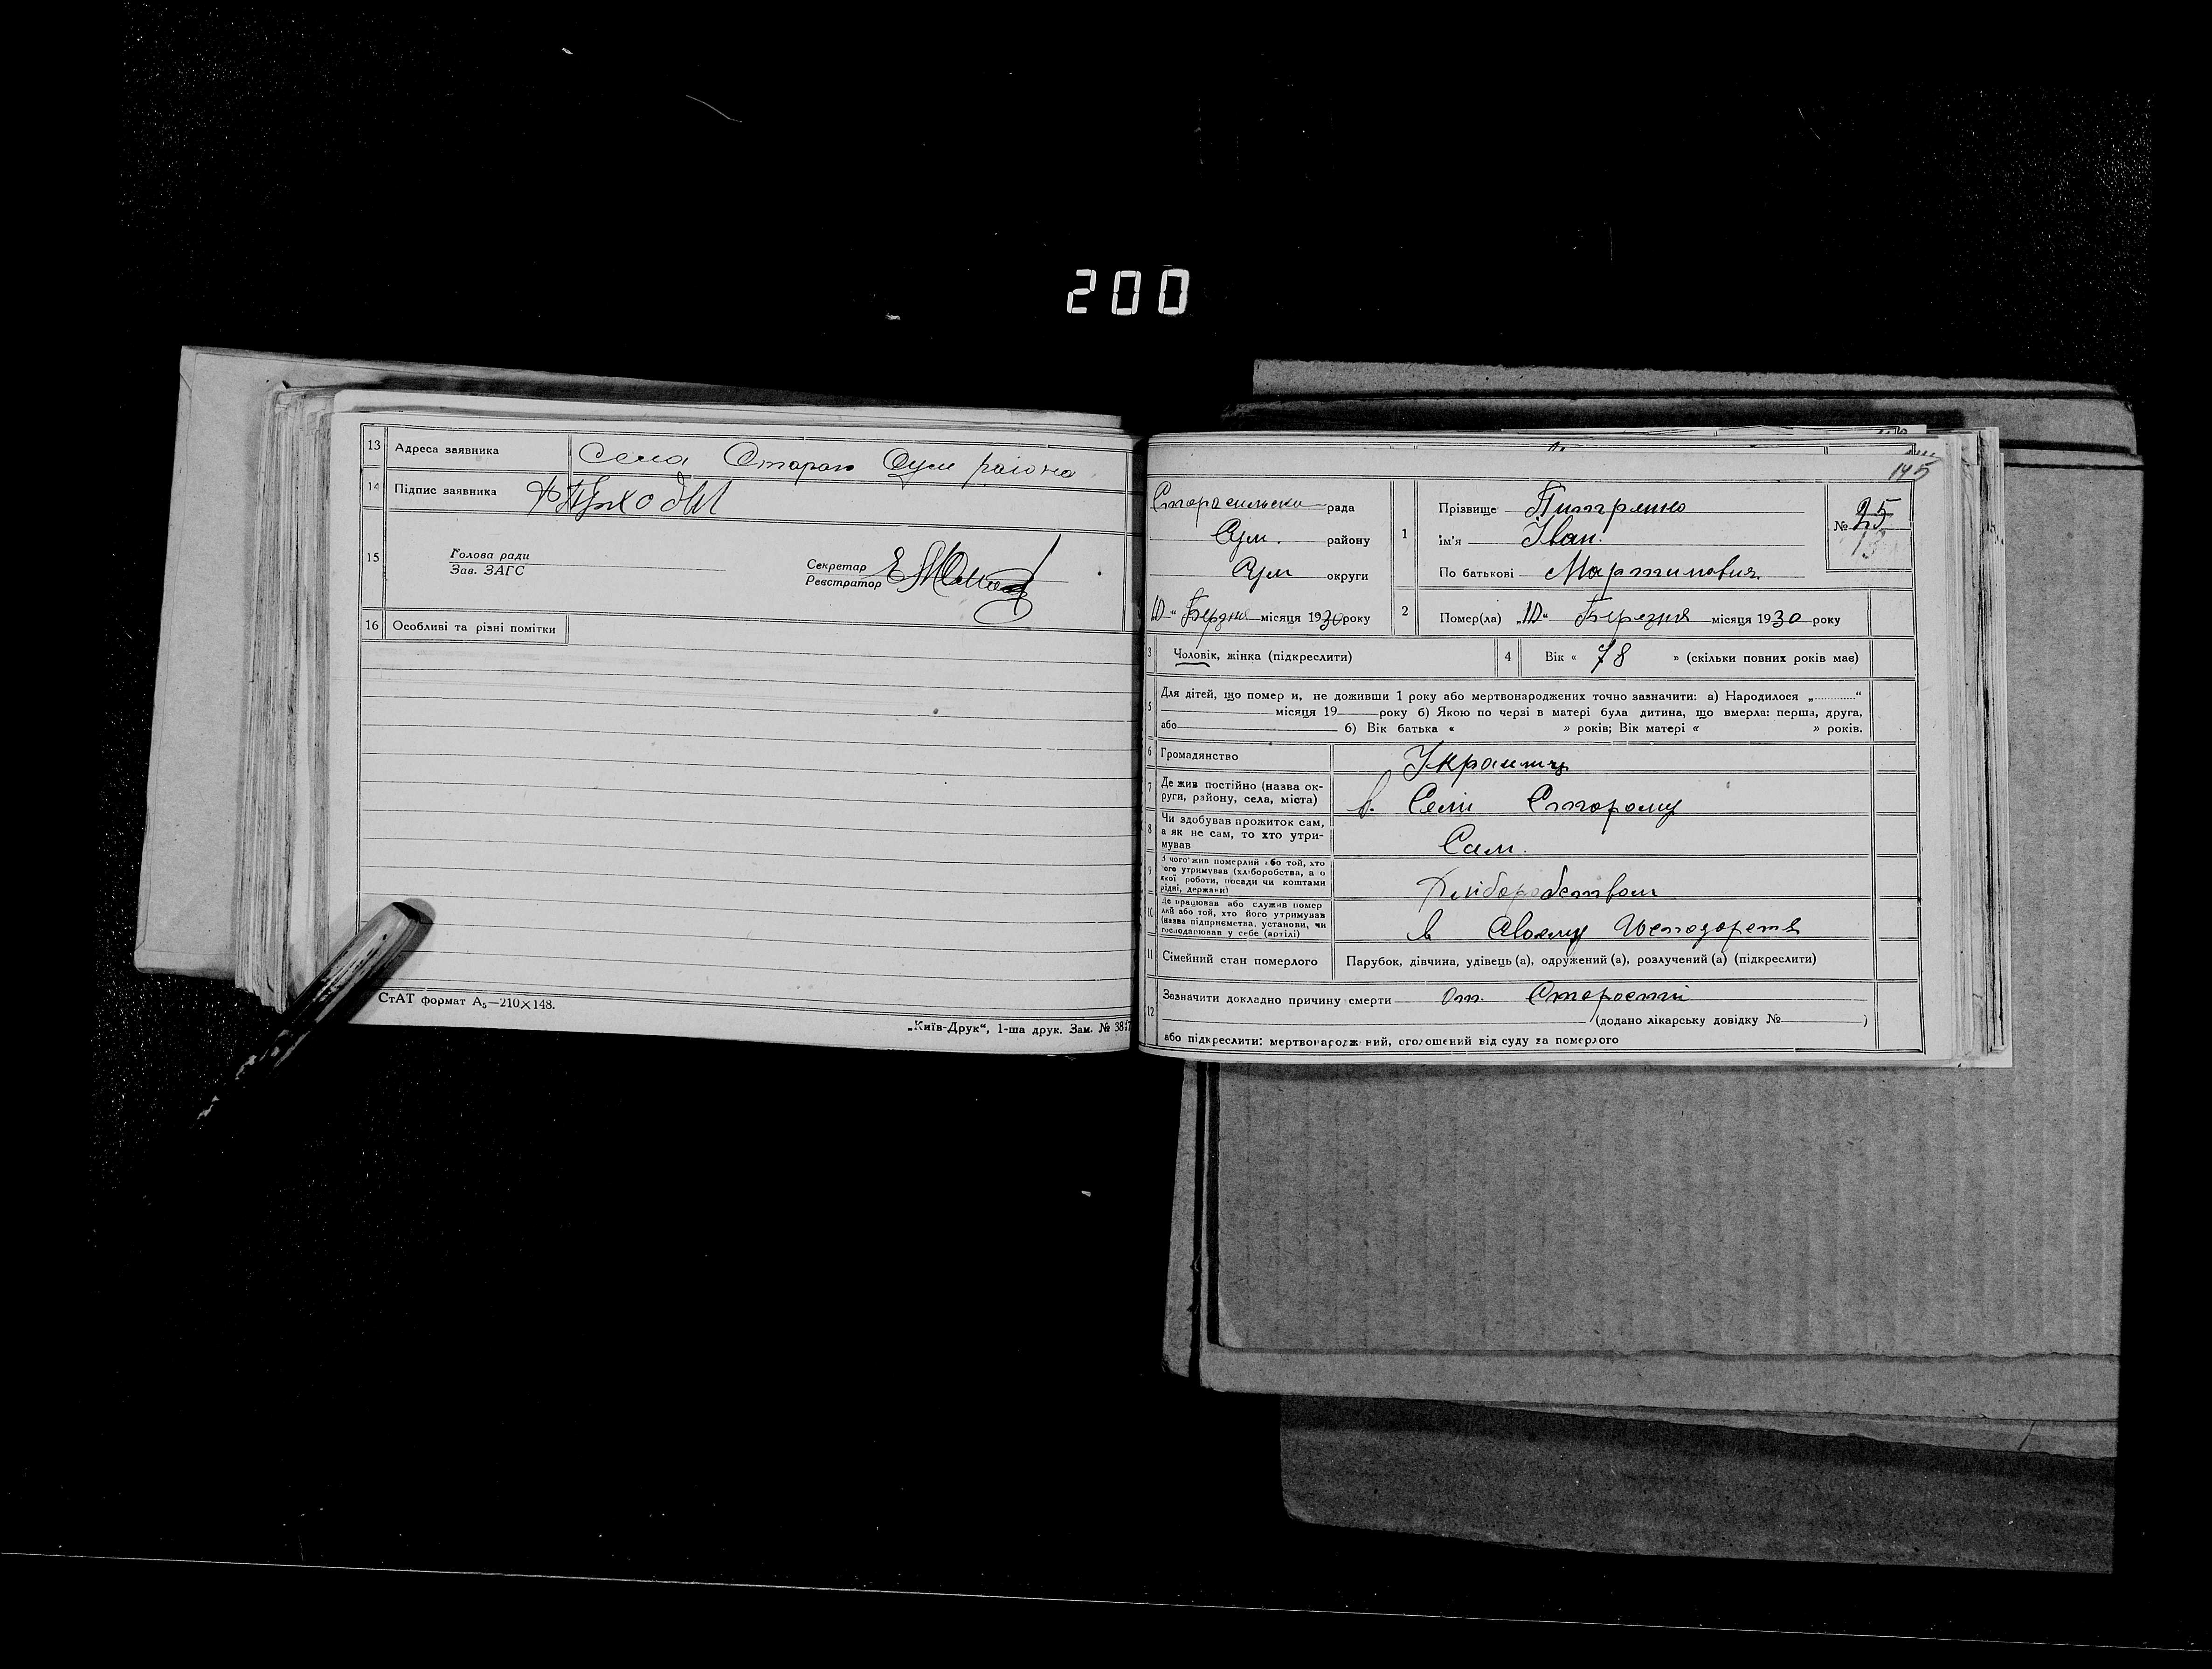 200
13 Адреса заявника Села Старого Сум района
14 Підпис заявника
15 Голова ради
Зав. ЗАГС
Секретар
Реєстратор
16 Особливі та різні помітки
СтАТ формат А₅—210×148.
„Київ-Друк“, 1-ша друк. Зам. № 381
145
Старосильська рада
Сум. району
Сум округи
10 “ Березня місяця 1930 року
1 Прізвище
ім'я Іван.
По батькові Мартинович
№ 25
25
13
2 Помер(ла) „10“ Березня місяця 1930 року
3 Чоловік, жінка (підкреслити)
4 Вік « 78 » (скільки повних років має)
5 Для дітей, що померли, не доживши 1 року або мертвонароджених точно зазначити: а) Народилося „ “
місяця 19 року б) Якою по черзі в матері була дитина, що вмерла: перша, друга,
або б) Вік батька « » років; Вік матері « » років.
6 Громадянство Украинец
7 Де жив постійно (назва ок-
руги, району, села, міста) в. Селі Старому
8 Чи здобував прожиток сам,
а як не сам, то хто утри-
мував Сам.
9 З чого жив померлий або той, хто
його утримував (хліборобства, а о
якої роботи, посади чи коштами
рідні, держави) Хліборобством
10 Де працював або служив помер
лий або той, хто його утримував
(назва підприємства, установи, чи
господарював у себе (артілі) в своему
11 Сімейний стан померлого Парубок, дівчина, удівець (а), одружений (а), розлучений (а) (підкреслити)
12 Зазначити докладно причину смерти от. Старости
(додано лікарську довідку № )
або підкреслити: мертвонароджений, оголошений від суду за померлого